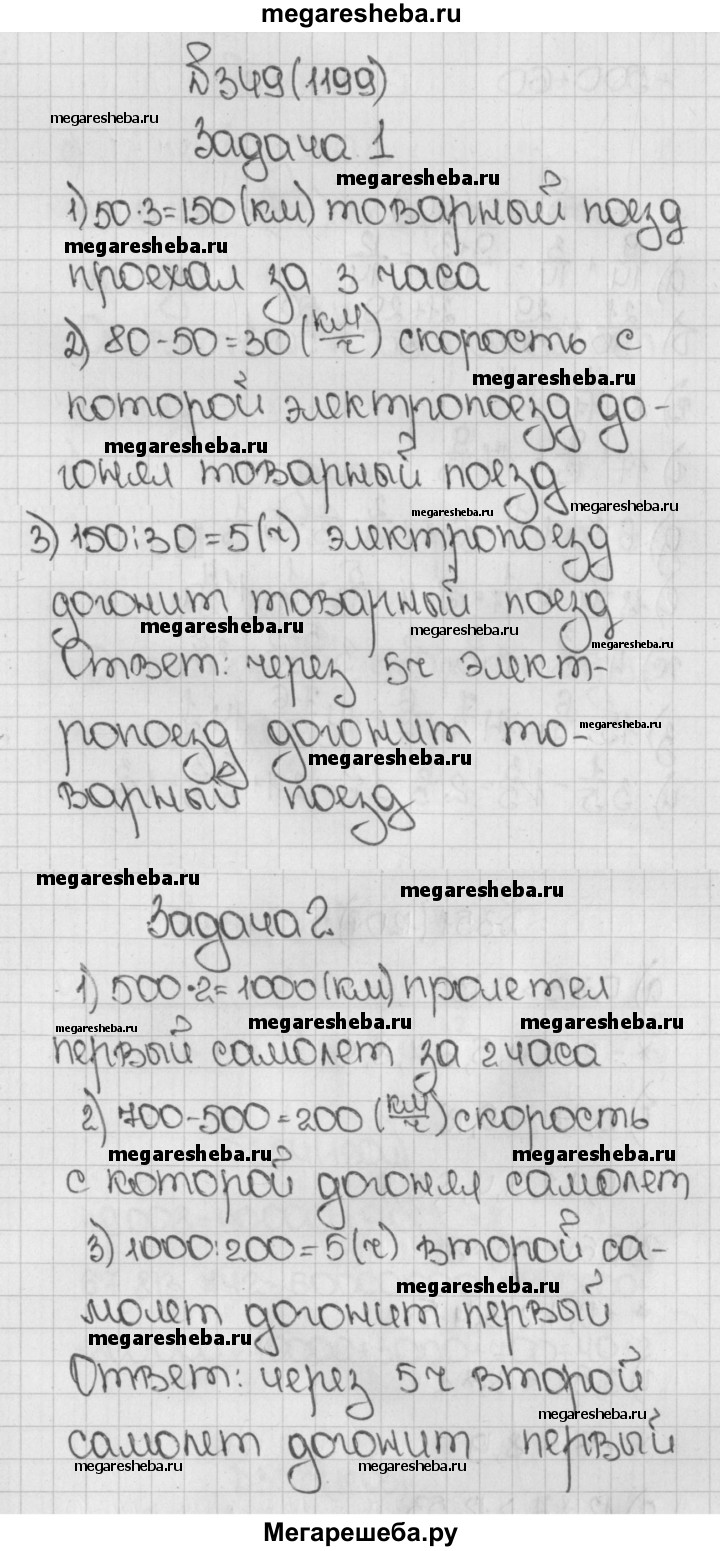 megaresheba.ru
№349(1199)
megaresheba.ru
Задача 1
megaresheba.ru
1) 50·3=150(км) товарный поезд
megaresheba.ru
проехал за 3 часа
2) 80-50=30(км/ч) скорость с
megaresheba.ru
которой электропоезд до-
megaresheba.ru
гонял товарный поезд
megaresheba.ru megaresheba.ru
3) 150:30=5(ч) электропоезд
догонит товарный поезд
megaresheba.ru megaresheba.ru
megaresheba.ru
Ответ: через 5ч элект-
ропоезд догонит то-
megaresheba.ru
megaresheba.ru
варный поезд
megaresheba.ru megaresheba.ru
Задача 2
1) 500·2=1000(км) пролетел
megaresheba.ru megaresheba.ru megaresheba.ru
первый самолет за 2 часа
2) 700-500=200(км/ч) скорость
megaresheba.ru megaresheba.ru
с которой догонял самолет
3) 1000:200=5(ч) второй са-
megaresheba.ru
молет догонит первый
megaresheba.ru
Ответ: через 5ч второй
megaresheba.ru
самолет догонит первый
megaresheba.ru megaresheba.ru
Мегарешеба.ру